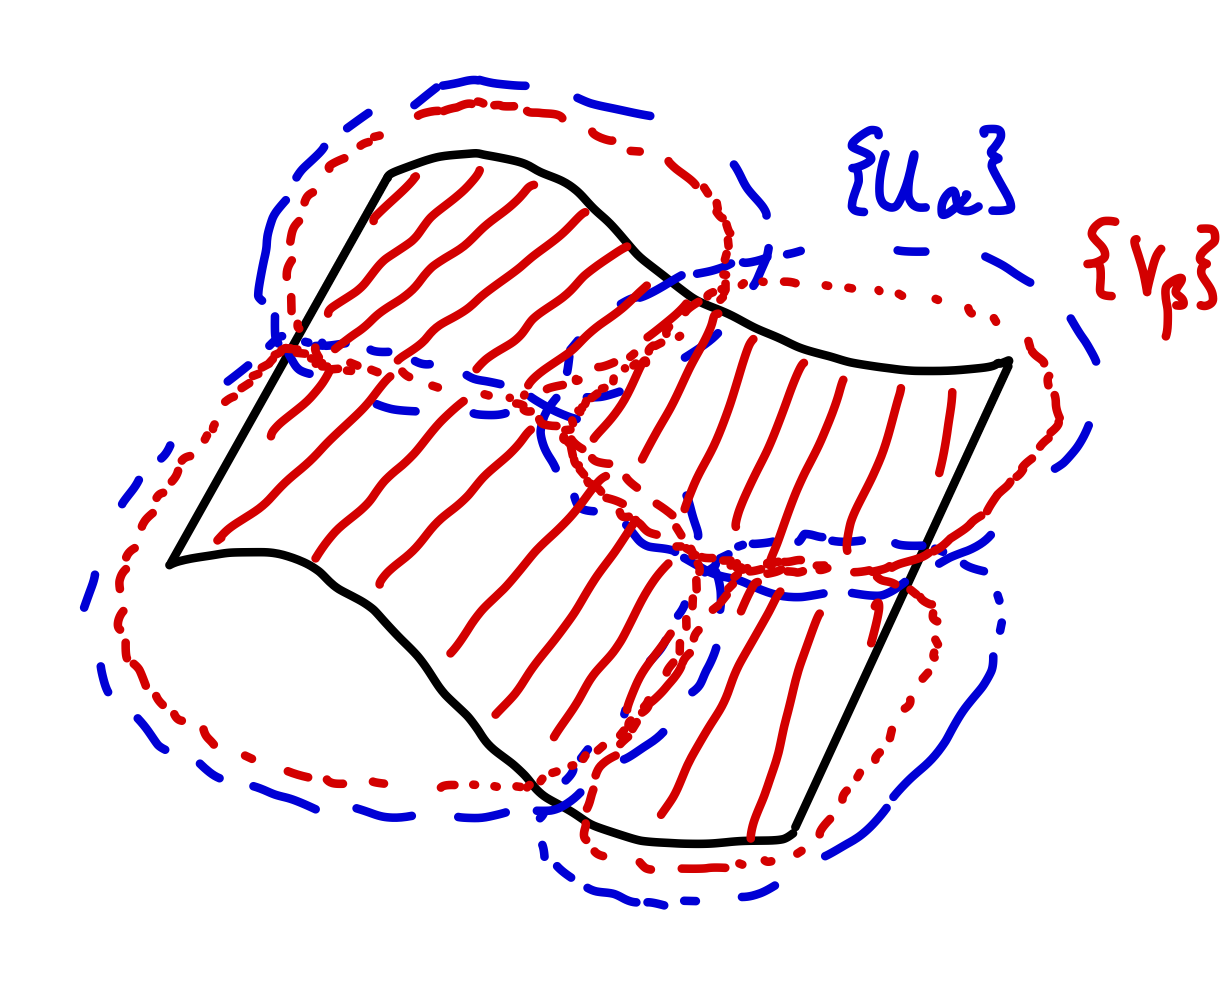 {U_α}
{V_β}